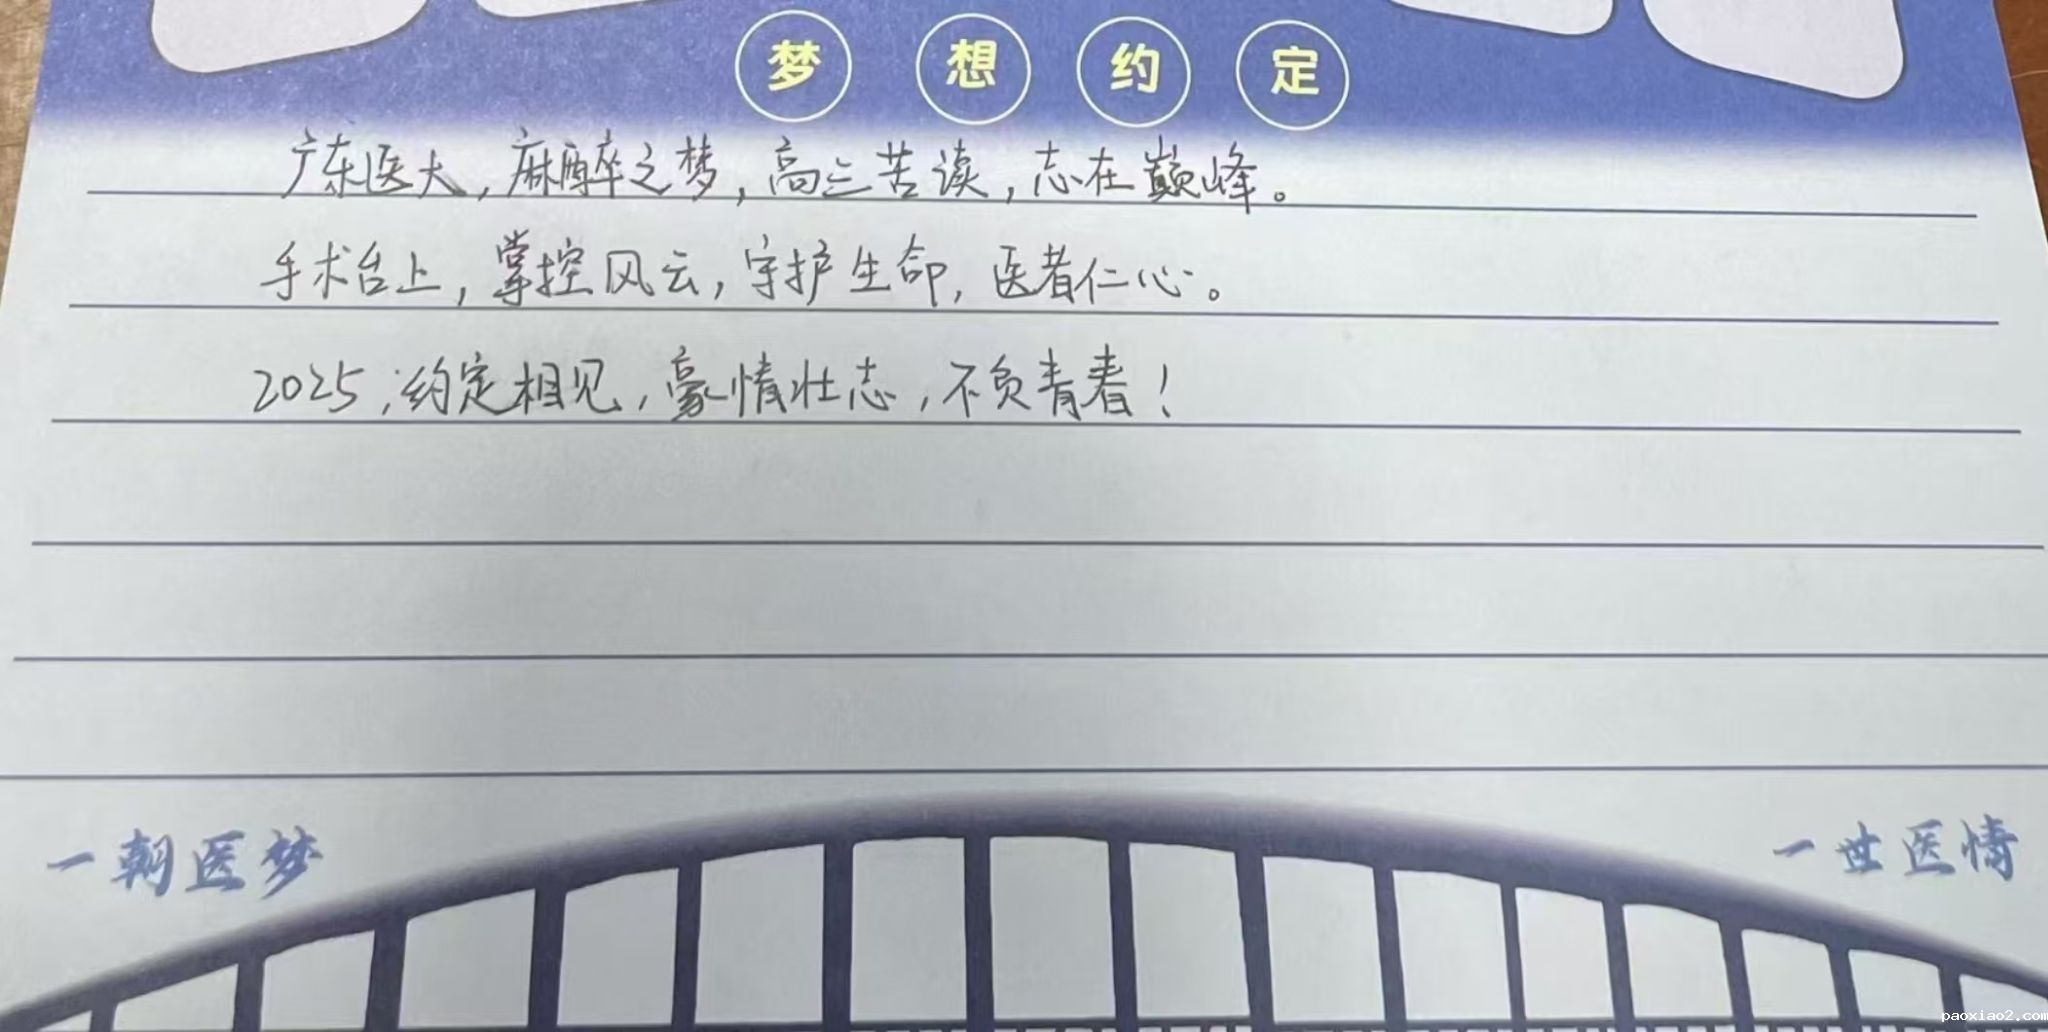 梦想约定
广东医大，麻醉之梦，高三苦读，志在巅峰。
手术台上，掌控风云，守护生命，医者仁心。
2025，约定相见，豪情壮志，不负青春！
一朝医梦
一世医情
paoxiao2.com